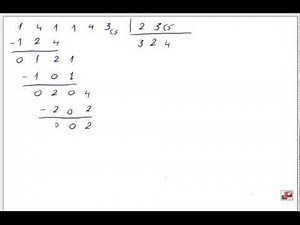 1 4 1 1 4 3(5 2 3(5
-1 2 4 3 2 4
0 1 2 1
-1 0 1
0 2 0 4
-2 0 2
0 0 2